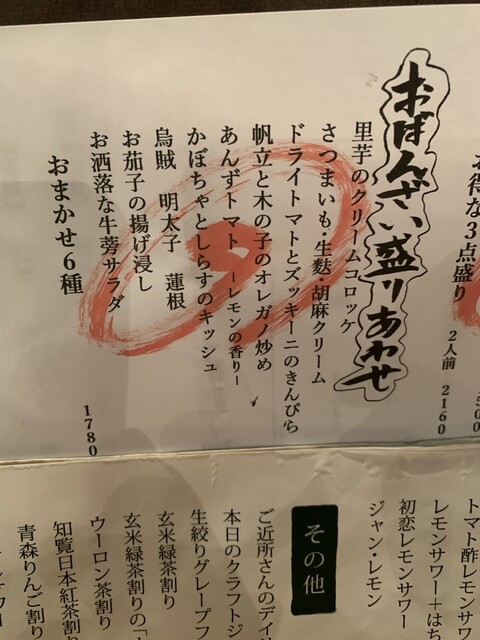 お得な3点盛り
2人前 2160
おばんざい盛りあわせ
里芋のクリームコロッケ
さつまいも・生麩・胡麻クリーム
ドライトマトとズッキーニのきんぴら
帆立と木の子のオレガノ炒め
あんずトマト ーレモンの香りー
かぼちゃとしらすのキッシュ
烏賊 明太子 蓮根
お茄子の揚げ浸し
お洒落な牛蒡サラダ
おまかせ6種
1780
トマト酢レモンサワ
レモンサワー+はち
初恋レモンサワー
ジャン・レモン
その他
ご近所さんのデイ
本日のクラフトジ
生絞りグレープフ
玄米緑茶割り
玄米緑茶割りの
ウーロン茶割り
知覧日本紅茶割り
青森りんご割り